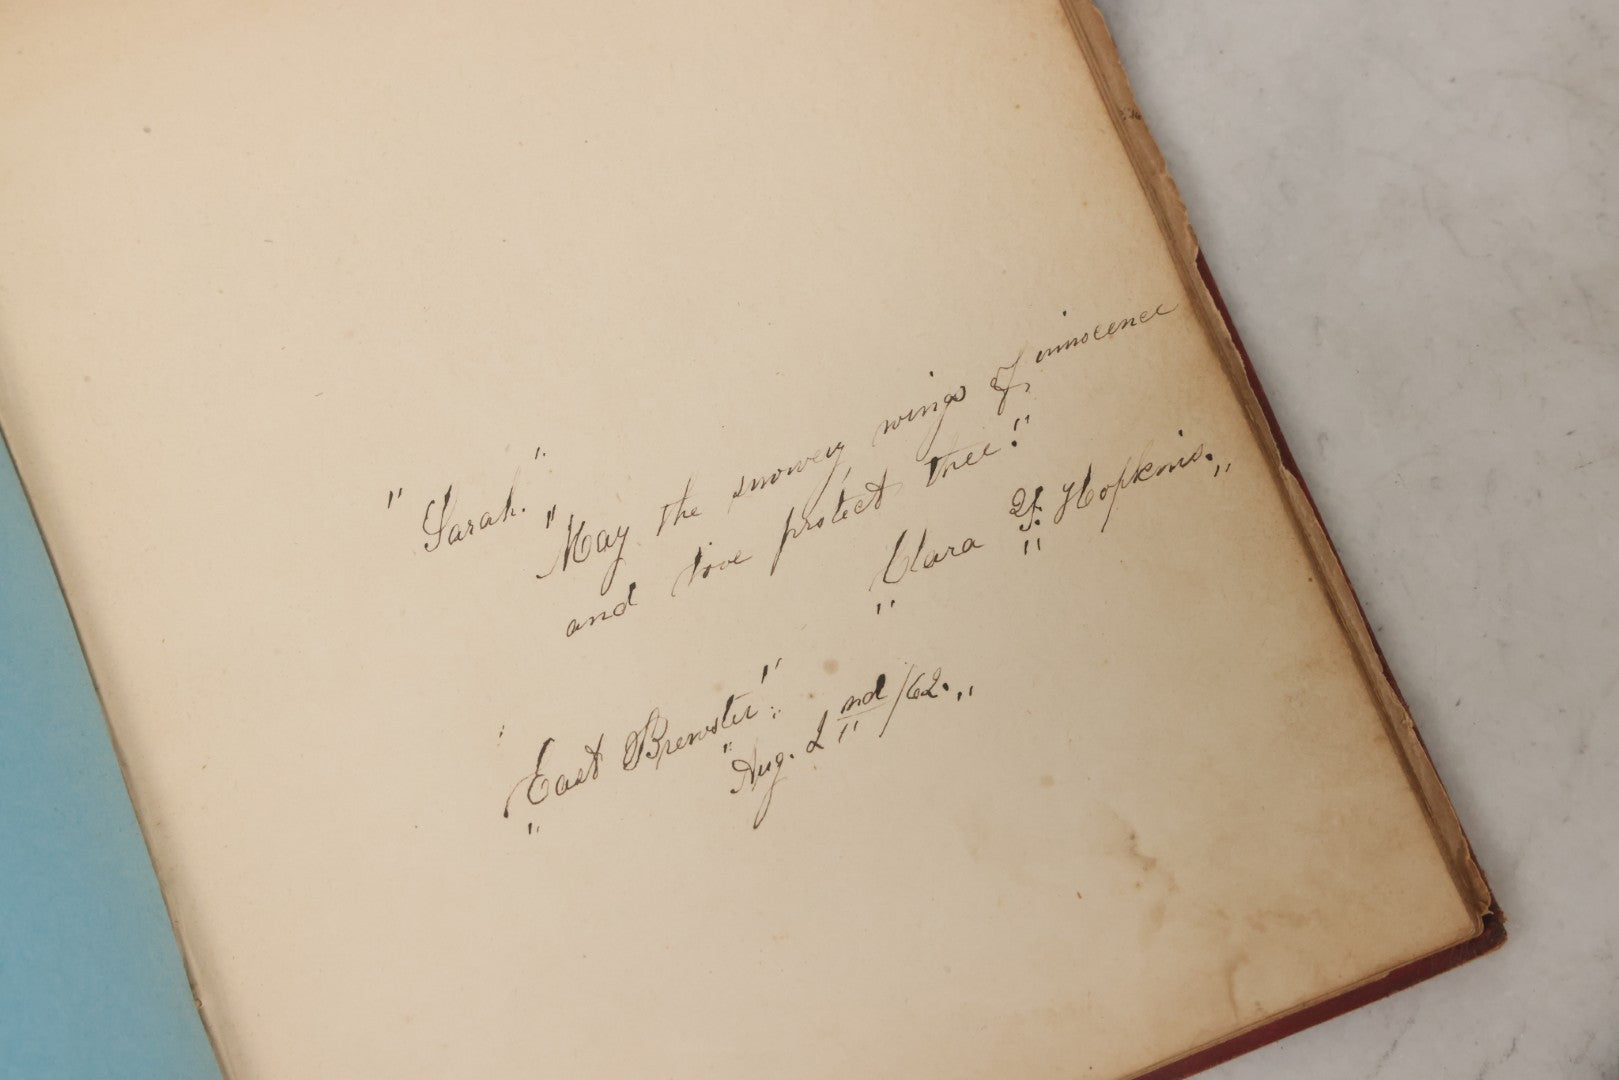 "Sarah."
"May the snowey wings of innocence
and love protect thee."
"Clara Y. Hopkins."
"East Brewster."
"Aug. 2nd /62."